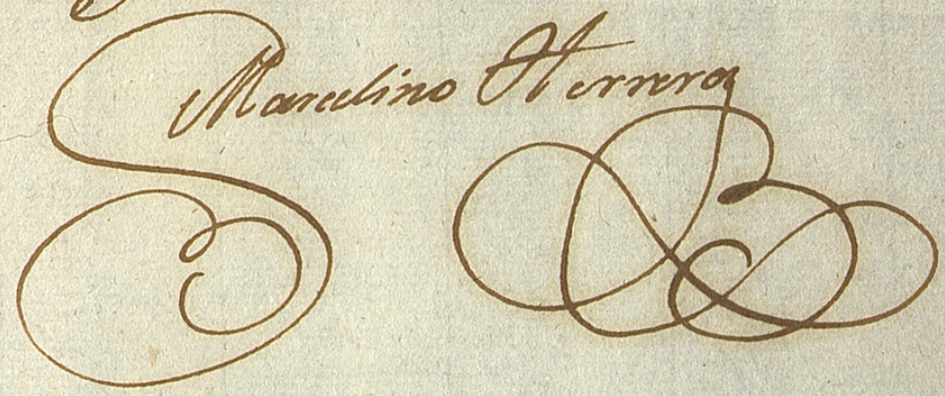 Marcelino Herrera